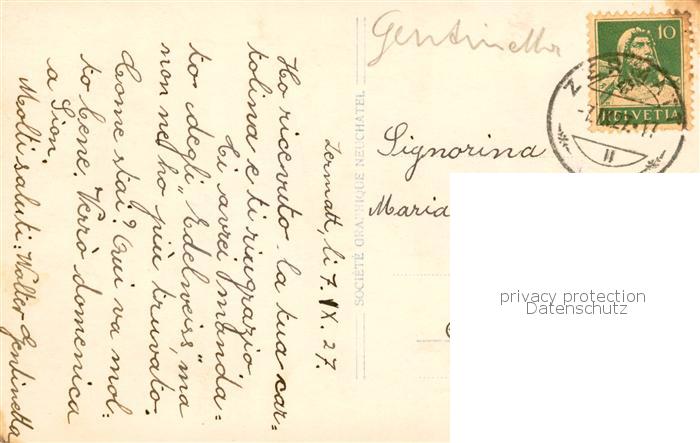 Zermatt, li 7. IX. 27.
Ho ricevuto la tua car=
tolina e ti ringrazio
Ti avrei manda=
to degli „Edelweiss", ma
non ne ho più truvato.
Come stai? Qui va mol:
to bene. Verrò domenica
a Sion.
Molti saluti: Walter Gentinetta
SOCIÉTÉ GRAPHIQUE NEUCHATEL
Gentinetta
10
HELVETIA
ZERMATT
Signorina
Maria
privacy protection
Datenschutz